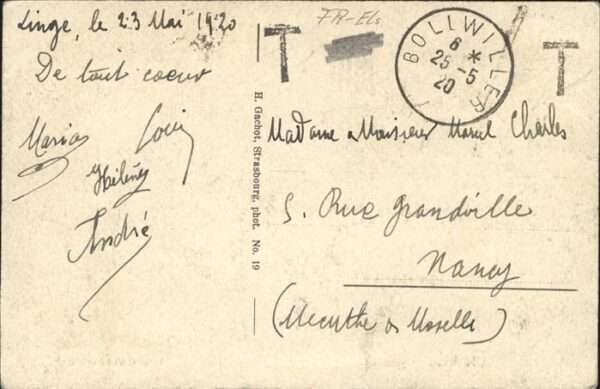 Linge, le 23 Mai 1920
De tout coeur
Maria Louis
Hélène
André
H. Gachot, Strasbourg, phot. No. 19
FR-Els
T
T
BOLLWILLER
6 *
25-5
20
Madame & Monsieur Marcel Charles
5. Rue Grandville
Nancy
(Meurthe & Moselle)